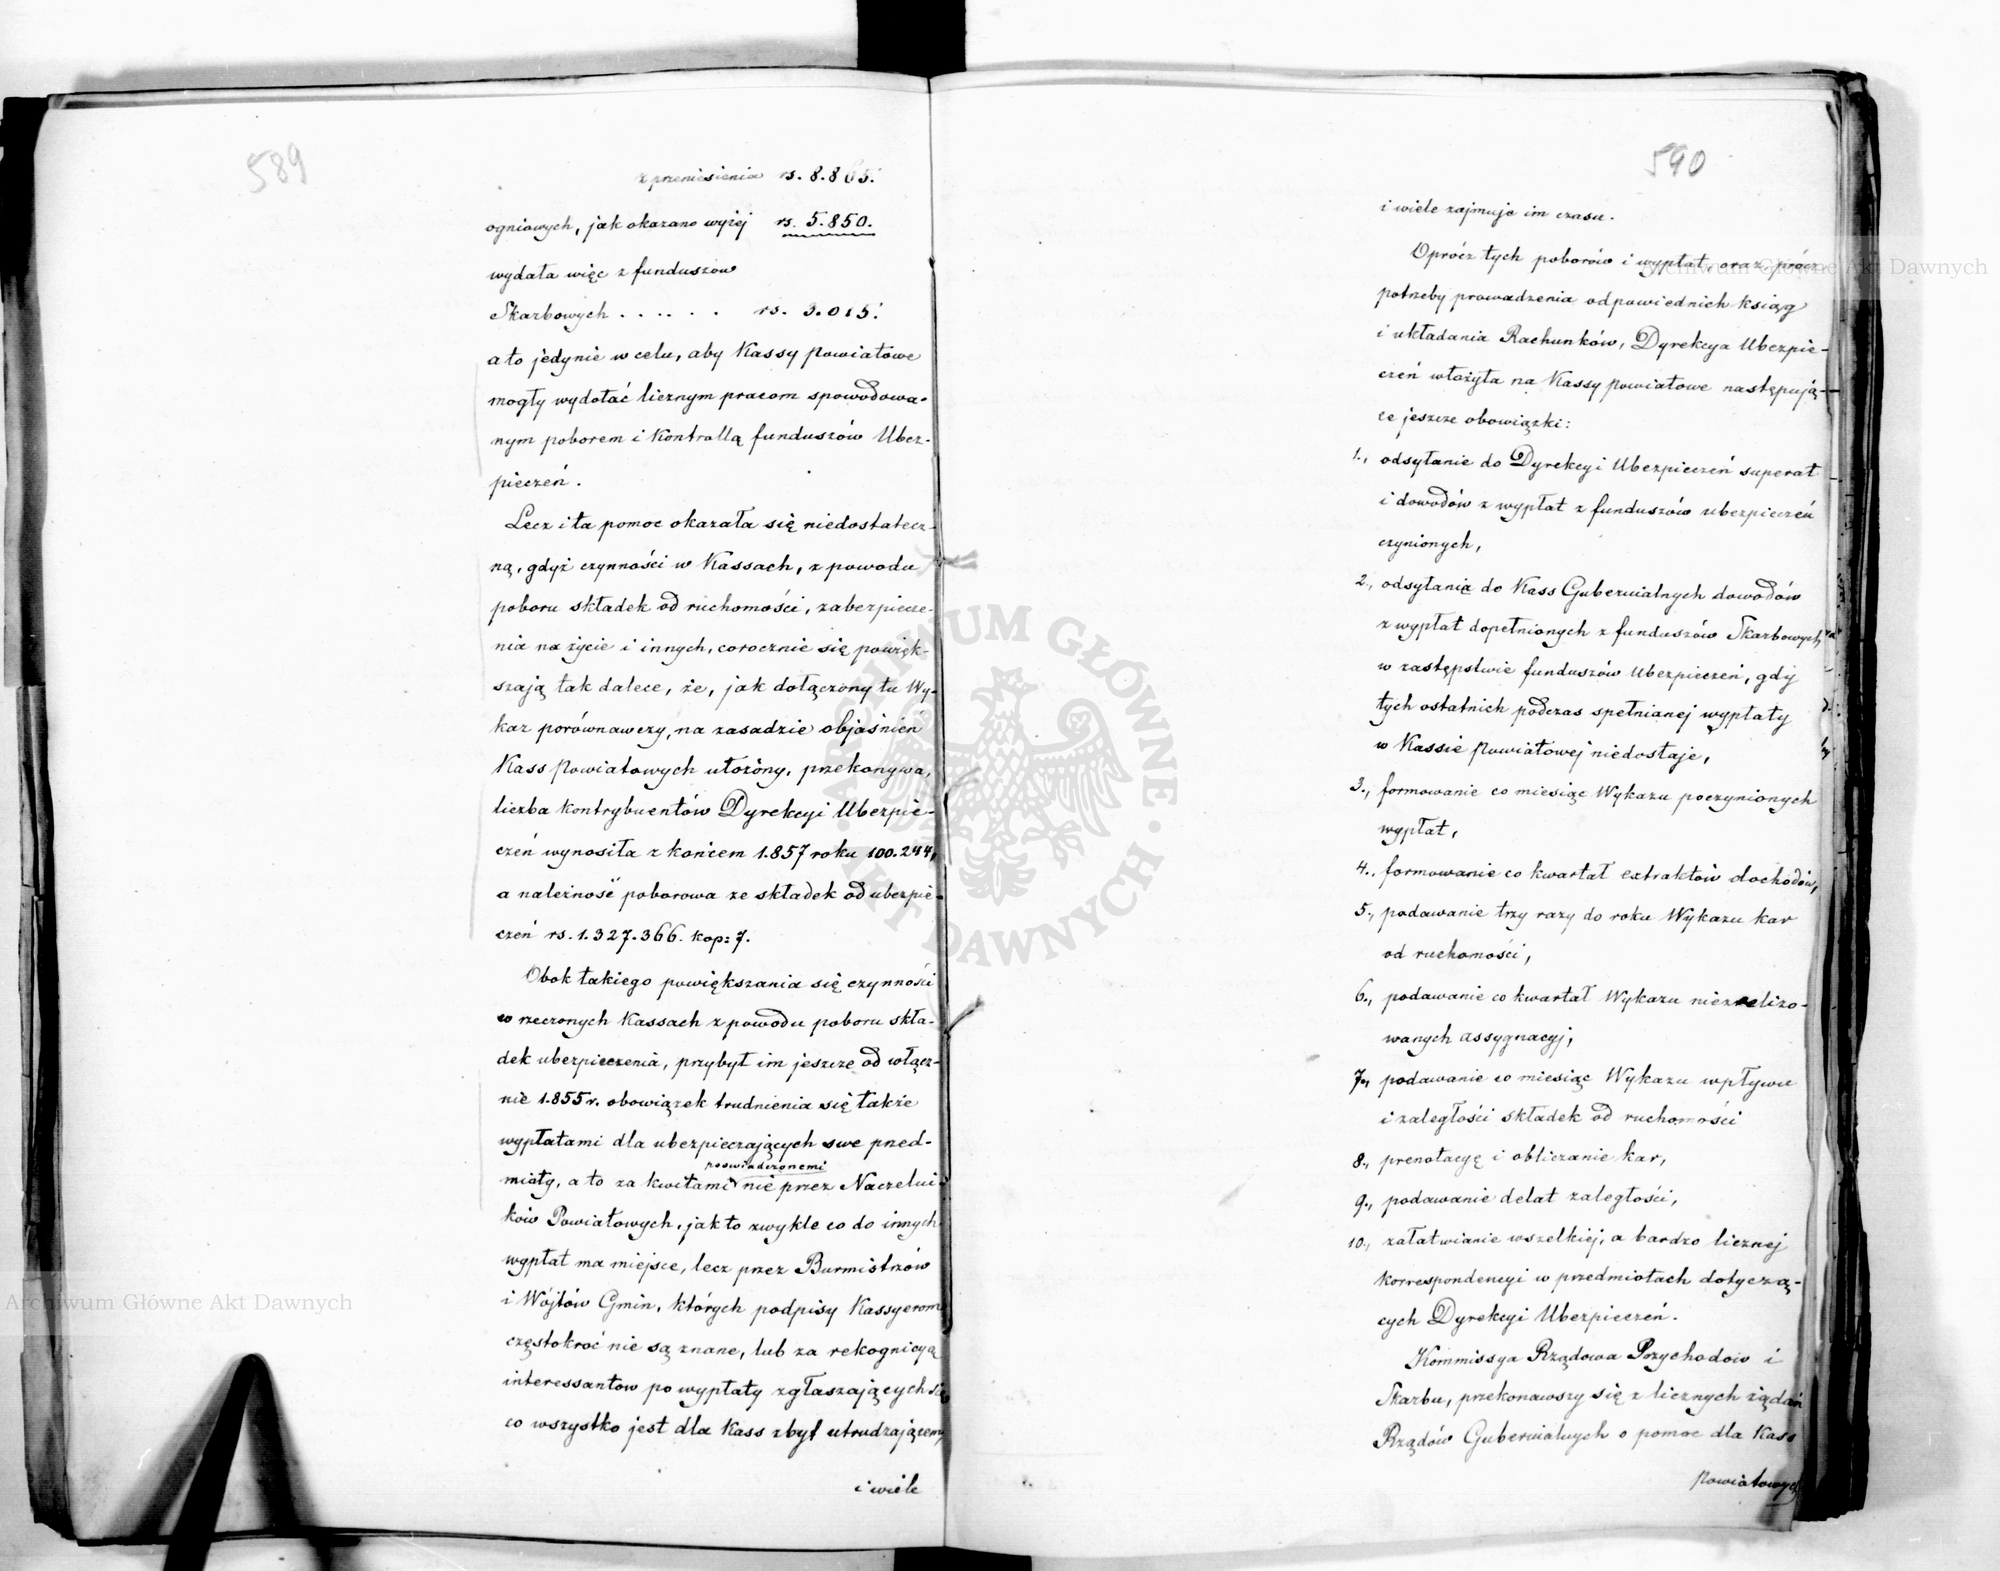 589
z przeniesienia rs. 8.865.
ogniowych, jak okazano wyżej rs. 5.850.
wydała więc z funduszów
Skarbowych . . . . . . rs. 3.015.
a to jedynie w celu, aby Kassy Powiatowe
mogły wydołać licznym pracom spowodowa-
nym poborem i Kontrollą funduszów Ubez-
pieczeń.
Lecz i ta pomoc okazała się niedostatecz-
ną, gdyż czynności w Kassach, z powodu
poboru składek od ruchomości, zabezpiecze-
nia na życie i innych, corocznie się powięk-
szają tak dalece, że, jak dołączony tu Wy-
kaz porównawczy, na zasadzie objaśnień
Kass Powiatowych ułożony, przekonywa,
liczba kontrybuentów Dyrekcyi Ubezpie-
czeń wynosiła z końcem 1.857 roku 100.244,
a należność poborowa ze składek od ubezpie-
czeń rs. 1.327.366. kop: 7.
Obok takiego powiększania się czynności
w rzeczonych Kassach z powodu poboru skła-
dek ubezpieczenia, przybył im jeszcze od włącz-
nie 1.855 r. obowiązek trudnienia się także
wypłatami dla ubezpieczających swe przed-
poświadczonemi
mioty, a to za kwitami nie przez Naczelni-
ków Powiatowych, jak to zwykle co do innych
wypłat ma miejsce, lecz przez Burmistrzów
i Wójtów Gmin, których podpisy Kassyerom
częstokroć nie są znane, lub za rekognicyą
interessantów po wypłaty zgłaszających się
co wszystko jest dla Kass zbyt utrudzającem,
i wiele
590
i wiele zajmuje im czasu.
Oprócz tych poborów i wypłat, oraz prócz
potrzeby prowadzenia odpowiednich ksiąg
i układania Rachunków, Dyrekcya Ubezpie-
czeń włożyła na Kassy Powiatowe następują-
ce jeszcze obowiązki:
1., odsyłanie do Dyrekcyi Ubezpieczeń superat
i dowodów z wypłat z funduszów ubezpieczeń
czynionych,
2., odsyłania do Kass Gubernialnych dowodów
z wypłat dopełnionych z funduszów Skarbowych,
w zastępstwie funduszów Ubezpieczeń, gdy
tych ostatnich podczas spełnianej wypłaty
w Kassie Powiatowej niedostaje,
3., formowanie co miesiąc Wykazu poczynionych
wypłat,
4., formowanie co kwartał extraktów dochodów,
5., podawanie trzy razy do roku Wykazu kar
od ruchomości,
6., podawanie co kwartał Wykazu niezrelizo-
wanych assygnacyj,
7., podawanie co miesiąc Wykazu wpływu
i zaległości składek od ruchomości
8., prenotacyę i obliczanie kar,
9., podawanie delat zaległości,
10., załatwianie wszelkiej, a bardzo licznej
korrespondencyi w przedmiotach dotyczą-
cych Dyrekcyi Ubezpieczeń.
Kommissya Rządowa Przychodów i
Skarbu, przekonawszy się z licznych żądań
Rządów Gubernialnych o pomoc dla Kass
Powiatowych
Archiwum Główne Akt Dawnych
Archiwum Główne Akt Dawnych
ARCHIWUM GŁÓWNE AKT DAWNYCH